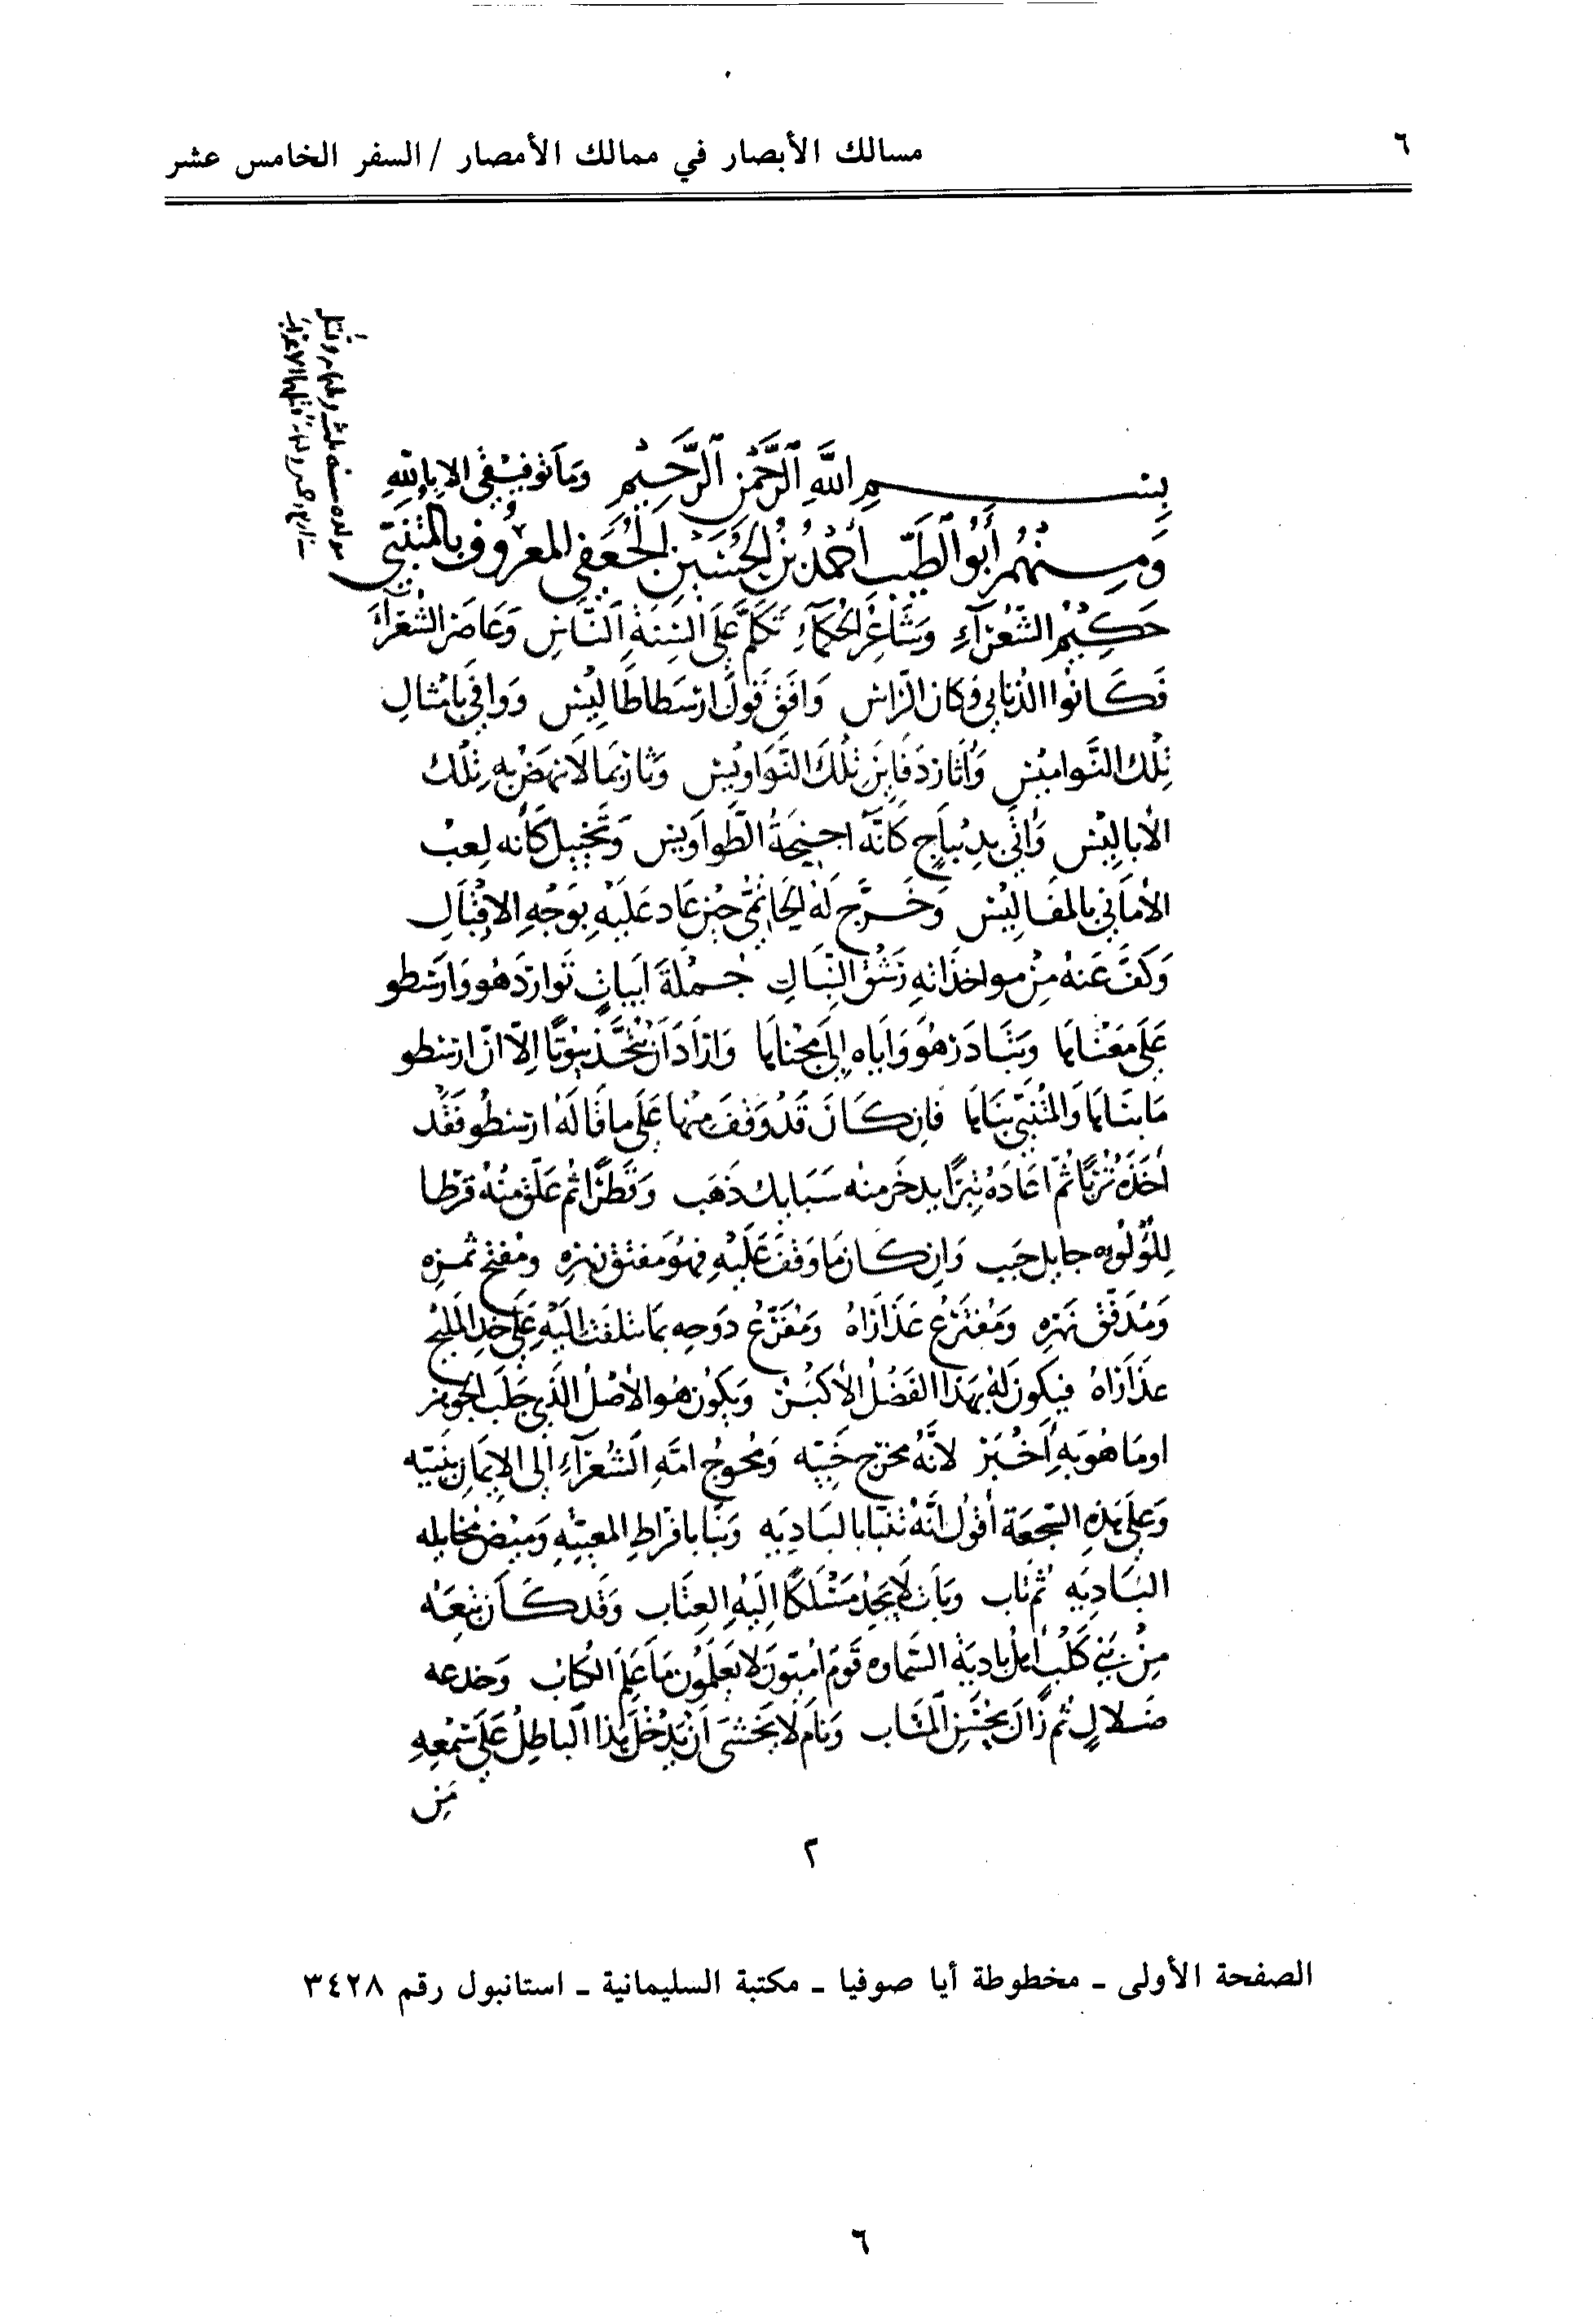 ٦
مسالك الأبصار في ممالك الأمصار / السفر الخامس عشر
مولده سنة ثلث وثلثمايه وقتل
بسم الله الرحمن الرحيم وما توفيقي الا بالله
ومنهم أبو الطيب أحمد بن الحسين الجعفي المعروف بالمتنبي
حكيم الشعراء وشاعر الحكماء تكلم على السنة الناس وعاصر الشعراء
فكانوا الذنابي وكان الراس وافق قول ارسطاطاليس ووافى بامثال
تلك النواميس وأثار دفاين تلك النواويس وثار بما لا نهض به تلك
الأباليس وأتى بديباج كأنه اجنحة الطواويس وتخييل كأنه لعب
الأماني بالمفاليس وخرج له الحاتمي حين عاد عليه بوجه الاقبال
وكف عنه من مواخذاته رشق النبال جملة ابيات توارد هو وارسطو
على مغناها وتبادر هو واياه إلى مجناها واراد أن يتخذ بيوتا إلا ان ارسطو
ما بناها والمتنبي بناها فان كان قد وقف منها على ما قاله ارسطو فقد
أخذه تربا ثم اعاده تبرا يدخر منه سبايك ذهب وقطرا ثم علق منه قرطا
للؤلؤه حبب وان كان ما وقف عليه فهو مفتق نهره ومفتح ثمره
ومدفق نهره ومفترع عذاراه ومفرع دوحه بما تلفت اليه على خد المليح
عذاراه فيكون له بهذا الفضل الأكبر ويكون هو الأصل الذي جلب الجوهر
اوما هو به أخبر لأنه مخرج خبيه ومحوج امة الشعراء إلى الايمان بنبيه
وعلى هذه السجعة أقول انه تنبا بالباديه ونبا بافراط المعيته وميض مخايله
الباديه ثم تاب وبات لا يجد مسلكا اليه العتاب وقد كان تبعه
من بني كلب أهل بادية السماوه قوم اميون لا يعلمون ما علم الكتاب وخدعه
ضلال ثم زال بحسن المتاب ونام لا يخشى أن يدخل هذا الباطل على سمعه
من
٢
الصفحة الأولى - مخطوطة أيا صوفيا - مكتبة السليمانية - استانبول رقم ٣٤٢٨
٦